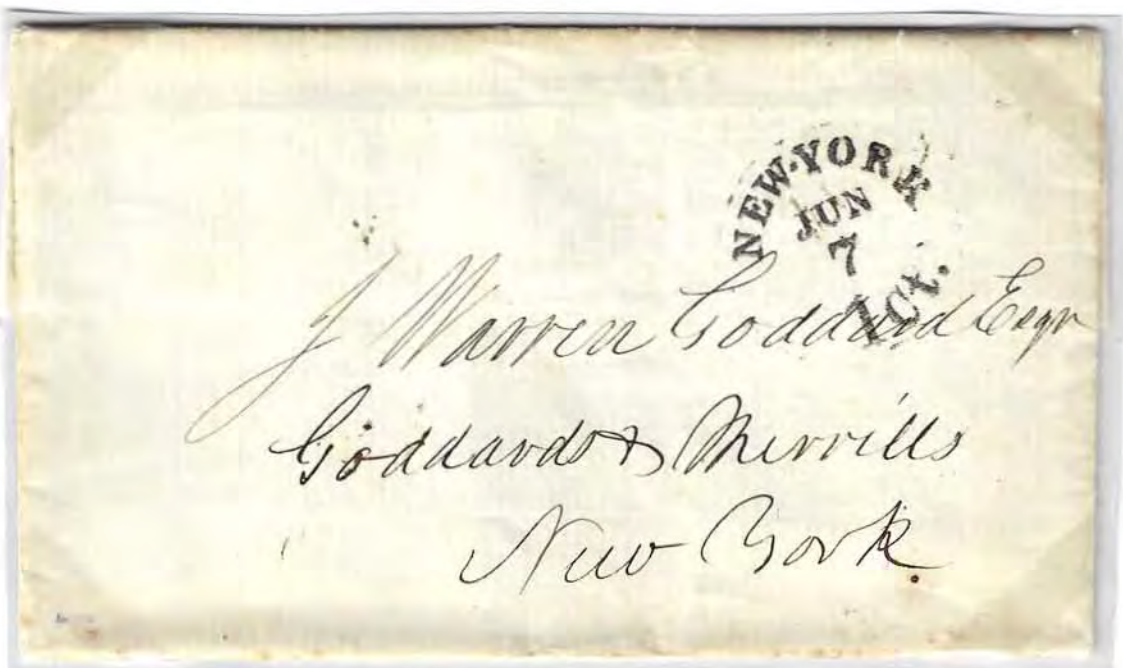 NEW-YORK
JUN
7
1 Ct.
J Warren Goddard Esqr
Goddards & Merrills
New York.